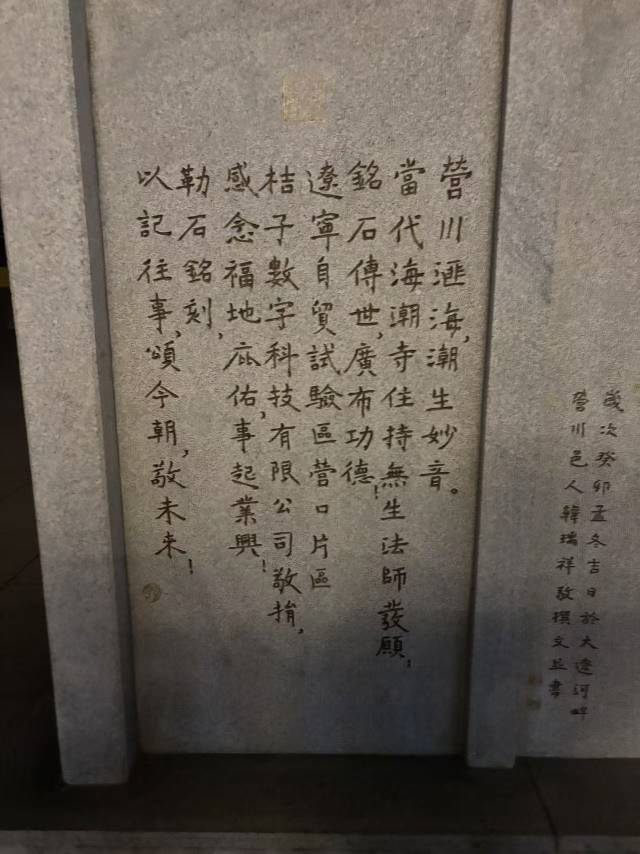 歲次癸卯孟冬吉日於大遼河畔
營川邑人韓瑞祥敬撰文並書
營川滙海,潮生妙音。
當代海潮寺住持無生法師發願,
銘石傳世,廣布功德!
遼寧自貿試驗區營口片區
桔子數字科技有限公司敬捐,
感念福地庇佑,事起業興!
勒石銘刻,
以記往事,頌今朝,敬未來!